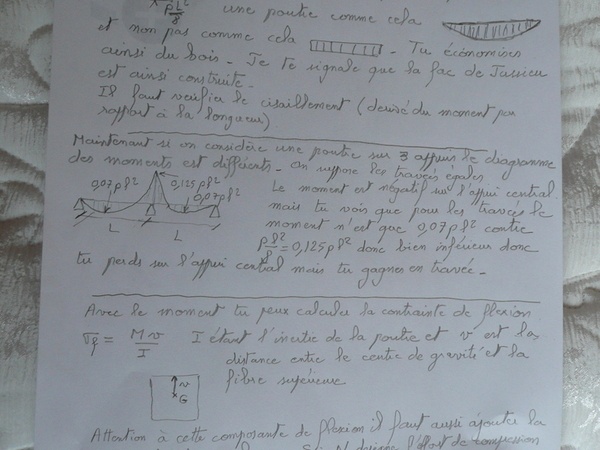 pl²/8 une poutre comme cela
et non pas comme cela . Tu économises
ainsi du bois. Je te signale que la fac de Jussieu
est ainsi construite.
Il faut vérifier le cisaillement (dérivé du moment par
rapport à la longueur)
Maintenant si on considère une poutre sur 3 appuis le diagramme
des moments est différents. On suppose les travées égales
0,07pl² 0,125pl² 0,07pl²
L L
Le moment est négatif sur l'appui central
mais tu vois que pour les travées le
moment n'est que 0,07pl² contre
pl²/8 = 0,125pl² donc bien inférieur donc
tu perds sur l'appui central mais tu gagnes en travée.
Avec le moment tu peux calculer la contrainte de flexion
σf = Mv/I I étant l'inertie de la poutre et v est la
distance entre le centre de gravité et la
fibre supérieure
v
G
Attention à cette composante de flexion il faut aussi ajouter la
Soit N désigne l'effort de compression